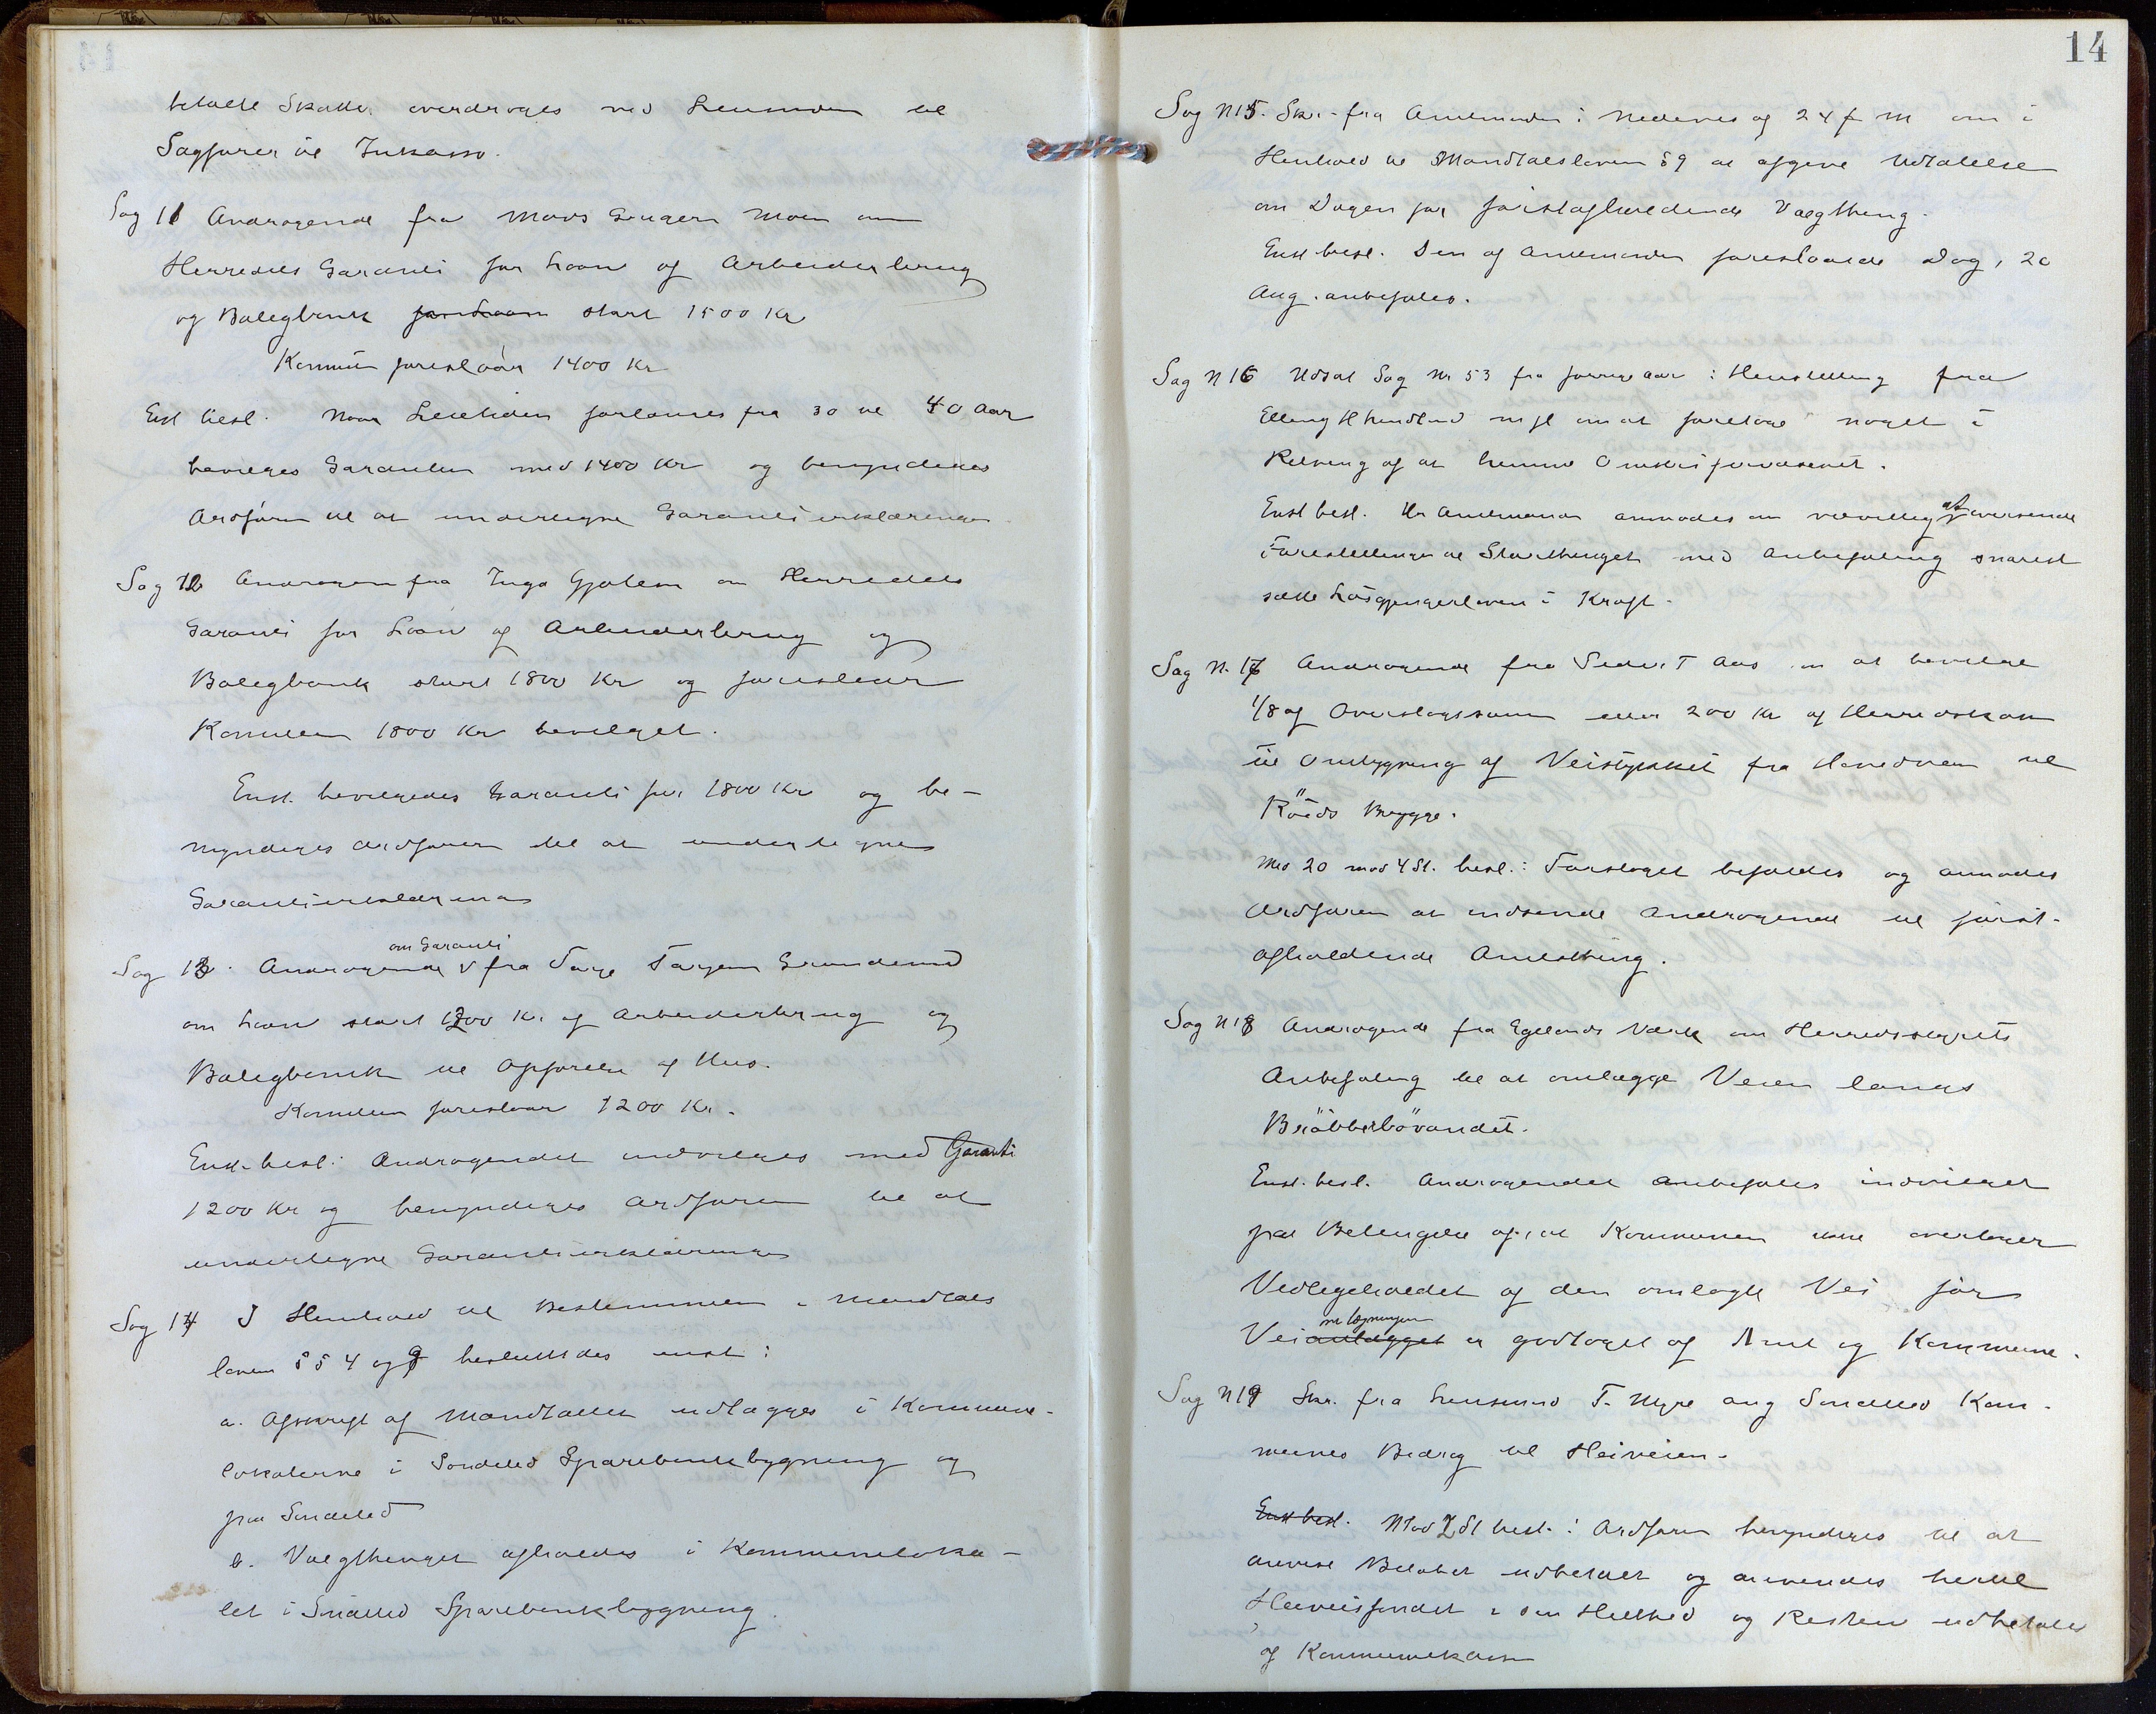 betalte Skatter overdrages ved Lensmanden til
Sagfører til Inkasso.
Sag 11 Andragende fra Mads Moen om
Herredets Garanti for Laan af Arbeiderbrug
og Boligbank for Laan stort 1500 Kr
Komiteen foreslaar 1400 Kr
Enst besl. Naar Levetiden forlanges fra 30 til 40 Aar
bevilges Garantien med 1400 Kr og bemyndiges
Ordfører til at undertegne Garantierklæringen
Sag 12 Andragende fra Inga Gjølem om Herredets
Garanti for Laan af Arbeiderbrug og
Boligbank stort 1800 Kr og foreslaar
Komiteen 1800 Kr bevilget.
Enst. bevilgedes Garanti for 1800 Kr og be-
myndiges Ordføren til at undertegne
Garantierklæringen
Sag 13. Andragende om Garanti fra Terje Terjesen
om Laan stort 1200 Kr af Arbeiderbrug og
Boligbank til Opførelse af Hus.
Komiteen foreslaar 1200 Kr.
Enst. besl: Andragendet indvilges med Garanti
1200 Kr og bemyndiges Ordføren til at
undertegne Garantierklæringen
Sag 14 I Henhold til Bestemmelsen i Mandtals
loven §§ 4 og 9 besluttedes enst:
a. Afskrift af Mandtallet udlægges i Kommune-
lokalerne i Søndeled Sparebankbygning og
paa Søndeled
b. Valgthinget afholdes i Kommuneloka-
let i Søndeled Sparebankbygning.
14
Sag N 15. Skr. fra Amtmanden i Nedenes af 24 f M om i
Henhold til Mandtalsloven § 9 at afgive Udtalelse
om Dagen for førstafholdende Valgthing.
Enst besl. Den af Amtmanden foreslaaede Dag, 20
Aug. anbefales.
Sag N 16 Udsat Sag Nr 53 fra forrige Aar: Henstilling fra
Elling H m fl om at foretage noget i
Retning af at hemme Omstreifervæsenet.
Enst besl. Hr Amtmanden anmodes om velvillig at oversende
Forestillingen til Storthinget med Anbefaling snarest
sætte Løsgjængerloven i Kraft.
Sag N. 17 Andragende fra T Aas om at bevilge
1/8 af Overslagssum eller 200 Kr af Herredskassen
til Ombygning af Veistykket fra til
Røeds Brygge.
Med 20 mod 4 St. besl.: Forslaget befaldes og anmodes
Ordføren at indsende Andragende til først-
afholdende Amtsthing.
Sag N 18 Andragende fra Egelands Værk om Herredsstyrets
Anbefaling til at omlægge Veien langs
Brøbbørvandet.
Enst. besl. Andragendet anbefales indvilget
paa Betingelse af, at Kommunen ikke overtager
Vedligeholdet af den omlagte Vei før
Veianlægget omlægningen er godtaget af Amt og Kommune.
Sag N 19 Skr. fra Lensmand T. Myre ang Søndeled Kom-
munes Bidrag til Heiveien.
Enst besl. Mod 2 St besl.: Ordføren bemyndiges til at
anvise Beløbet udbetalt og anvendes hertil
Heiveisfondet i sin Helhed og Resten udbetales
af Kommunekassen